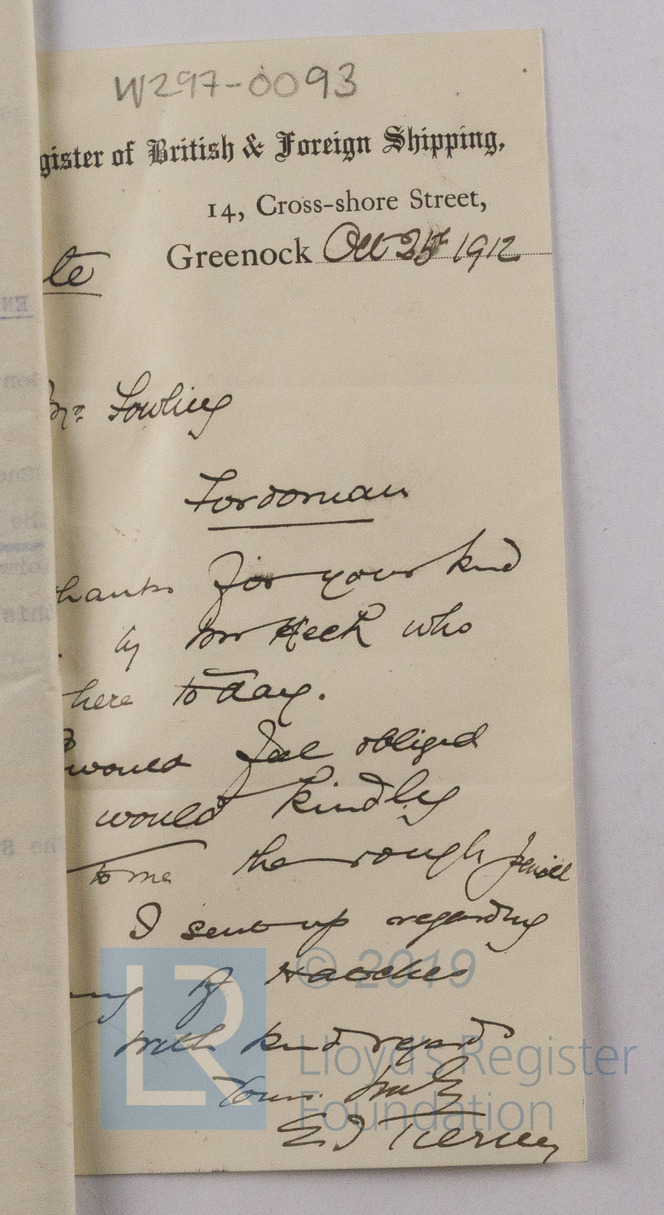 W297-0093
gister of British & Foreign Shipping,
14, Cross-shore Street,
Greenock Oct 25 1912
te
Mr. Fowling
Fordonian
thanks for your kind
by Mr Heck who
here today.
I would feel obliged
would kindly
to me the rough pencil
I sent up regarding
of Hatches
with kind regards
Yours truly
E J Tierney
© 2019
LR
Lloyd's Register
Foundation